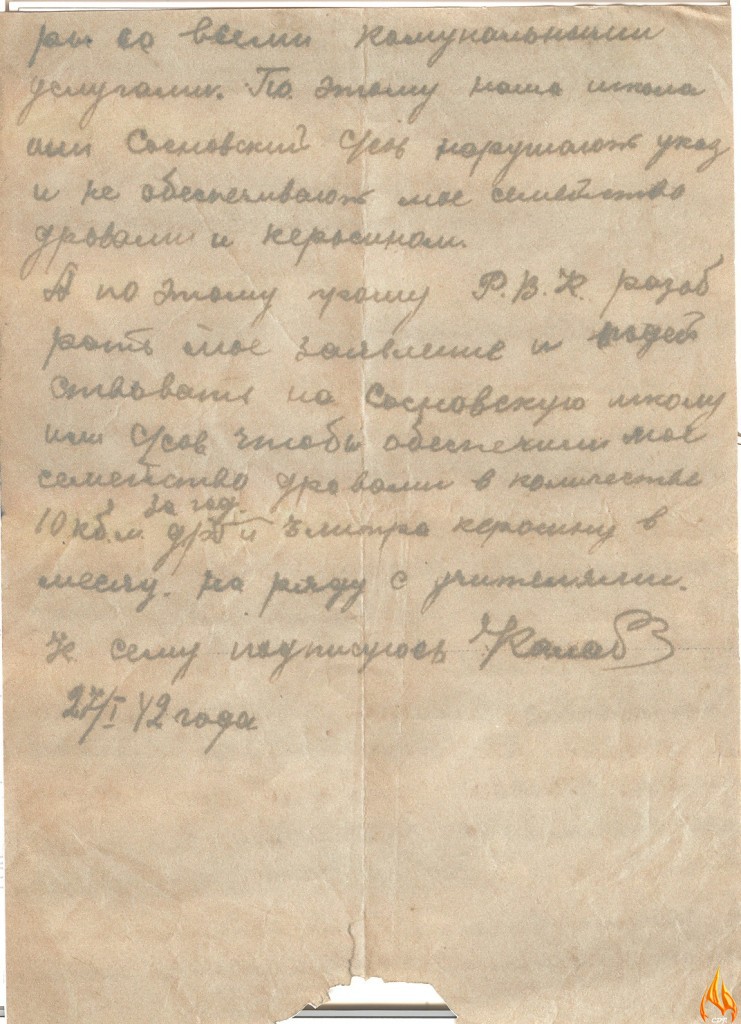 ры со всеми комунальными
услугами. По этому наша школа
или Сосновский с/сов нарушают указ
и не обеспечивают мое семейство
дровами и керосином.
А по этому прошу Р.В.К. разоб
рать мое заявление и подей
ствовать на Сосновскую школу
или с/сов чтобы обеспечили мое
семейство дровами в количестве
за год.
10 кб.м. др и литра керосину в
месяц. на ряду с учителями.
К сему подписуюсь
27/I 42 года